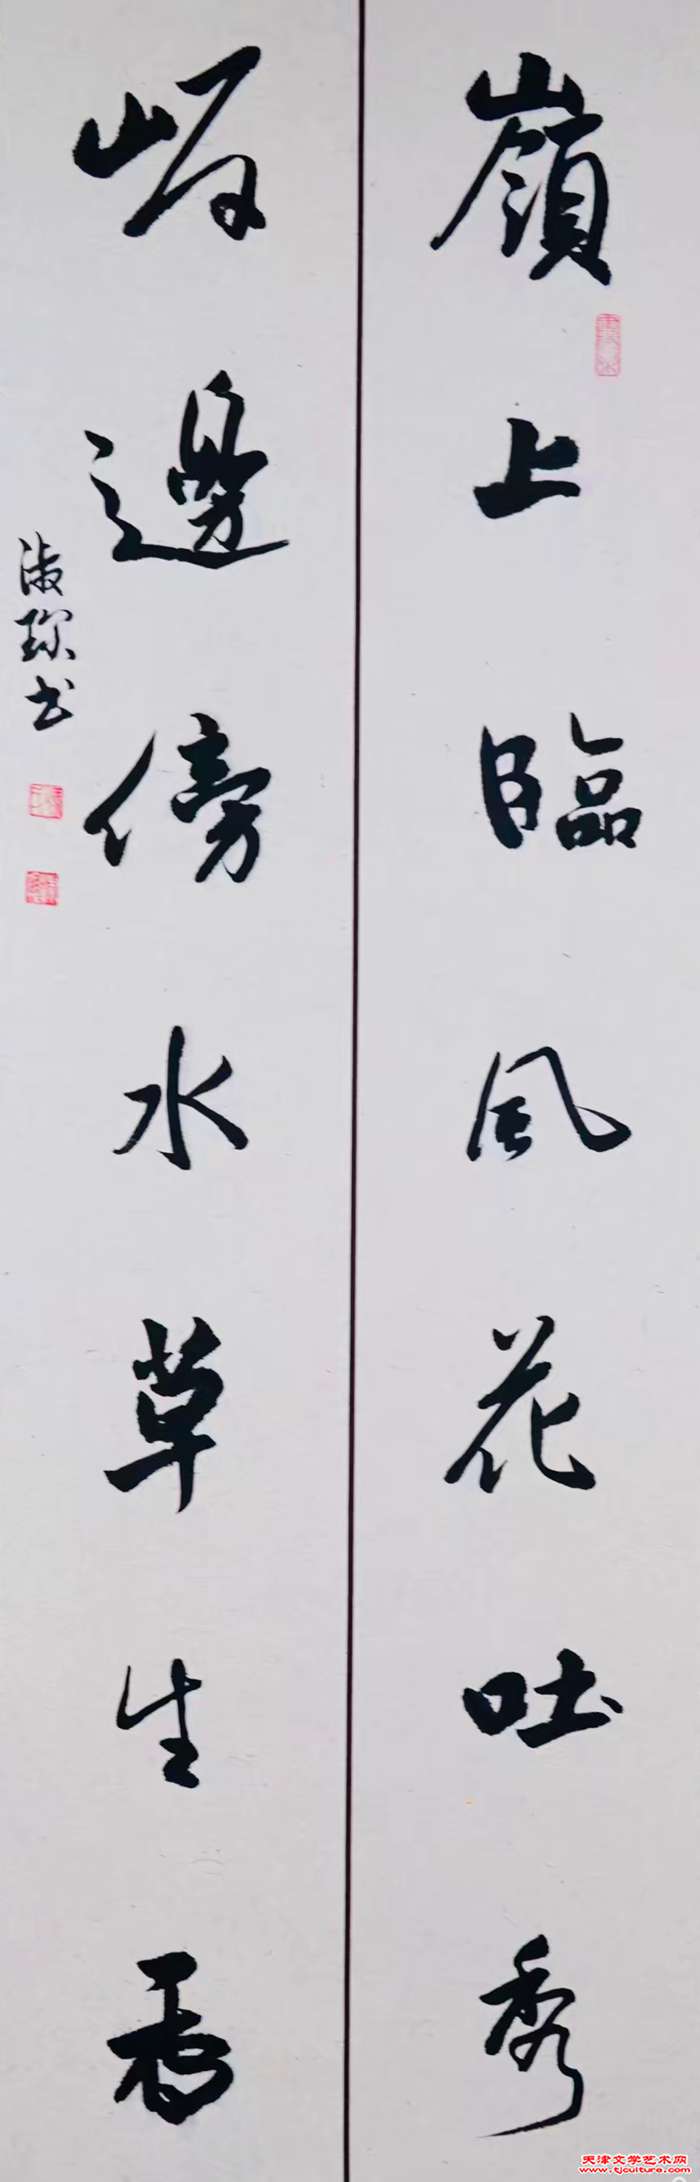 嶺上臨風花吐秀
岸邊傍水草生
淑珍书
天津文学艺术网
www.tjculture.com